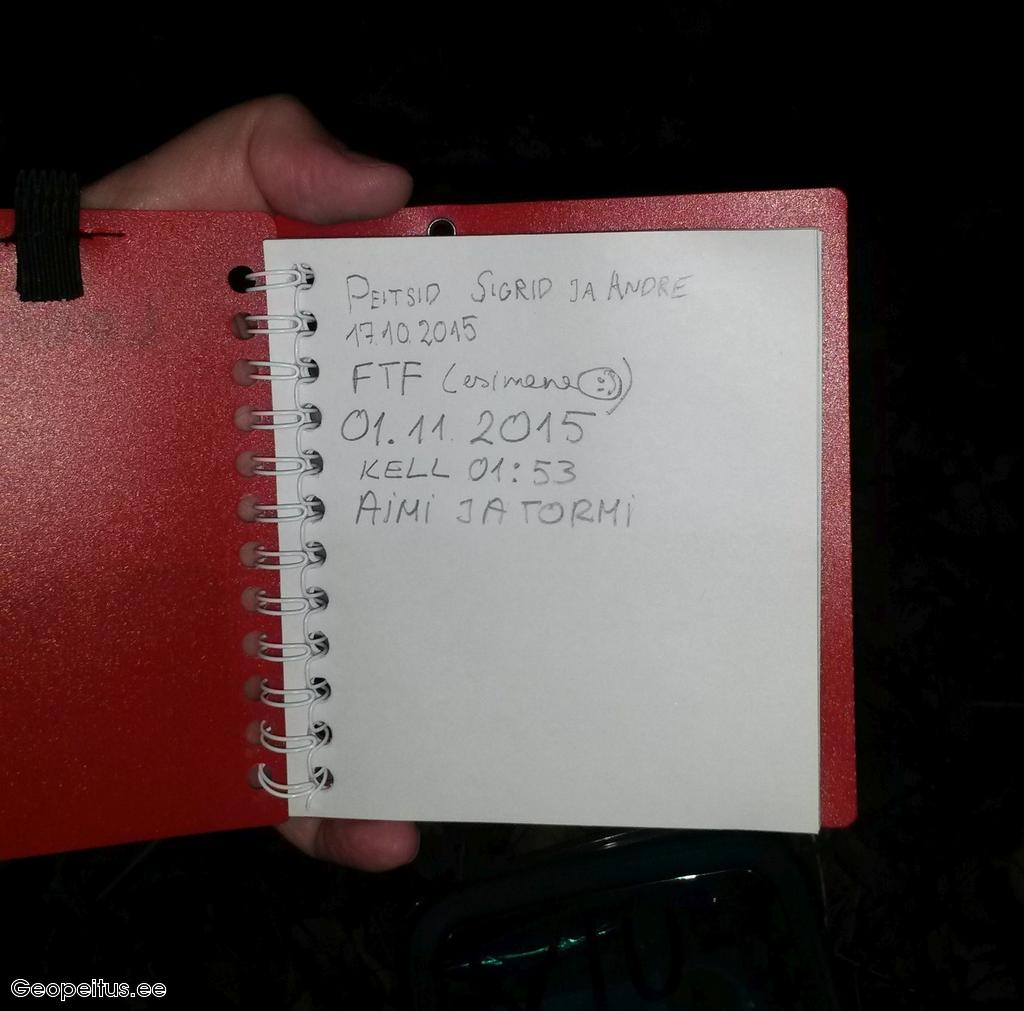 PEITSID SIGRID JA ANDRE
17.10.2015
FTF (esimene☺)
01.11.2015
KELL 01:53
AIMI JA TORMI
Geopeitus.ee